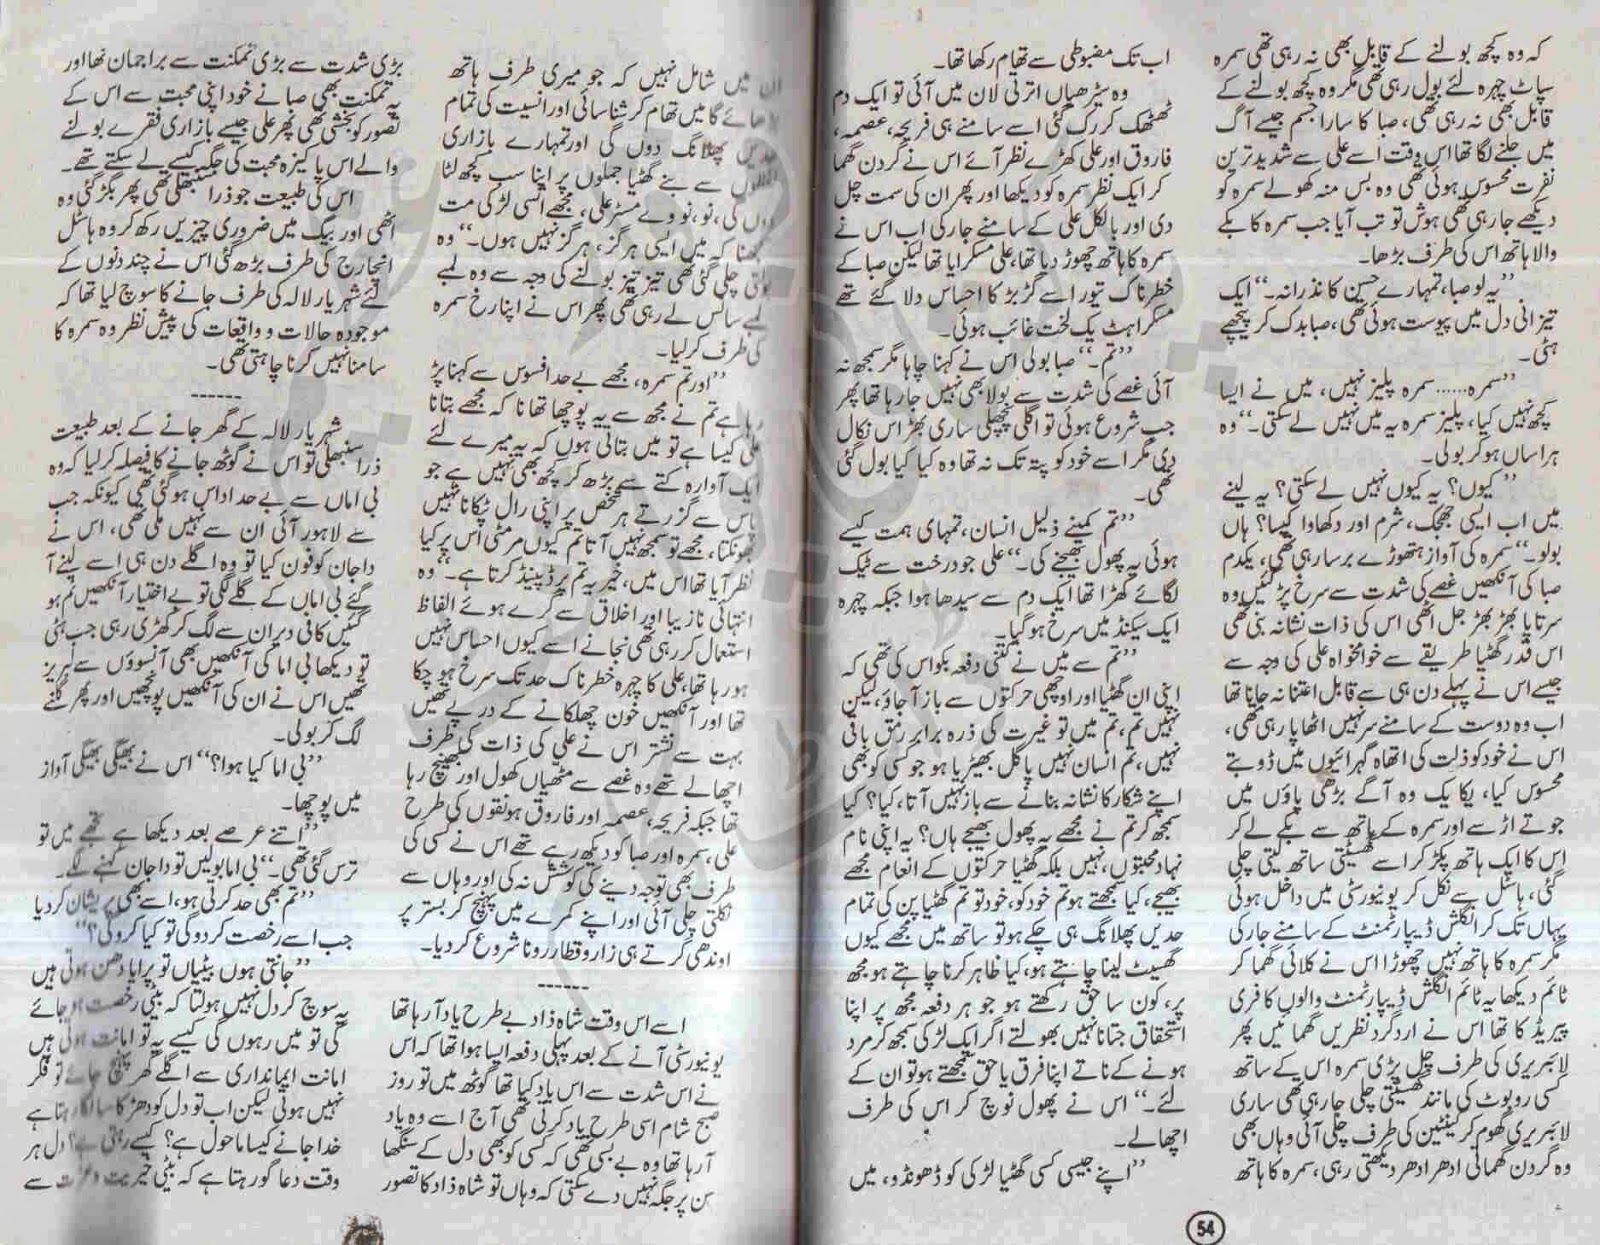 کہ وہ کچھ بولنے کے قابل بھی نہ رہی تھی سمرہ
سپاٹ چہرہ لئے بول رہی تھی مگر وہ کچھ بولنے کے
قابل بھی نہ رہی تھی، صبا کا سارا جسم جیسے آگ
میں جلنے لگا تھا اس وقت اسے علی سے شدید ترین
نفرت محسوس ہوئی تھی وہ بس منہ کھولے سمرہ کو
دیکھے جا رہی تھی ہوش تو تب آیا جب سمرہ کا بکے
والا ہاتھ اس کی طرف بڑھا۔
”یہ لو صبا، تمہارے حسن کا نذرانہ۔“ ایک
تیر انی دل میں پیوست ہوئی تھی، صبا بدک کر پیچھے
ہٹی۔
”سمرہ...... سمرہ پلیز نہیں، میں نے ایسا
کچھ نہیں کیا، پلیز سمرہ یہ میں نہیں لے سکتی۔“ وہ
ہراساں ہو کر بولی۔
”کیوں؟ یہ کیوں نہیں لے سکتی؟ یہ لینے
میں اب ایسی جھجک، شرم اور دکھاوا کیسا؟ ہاں
بولو۔“ سمرہ کی آواز ہتھوڑے برسا رہی تھی، یکدم
صبا کی آنکھیں غصے کی شدت سے سرخ پڑ گئیں وہ
سرتاپا بھڑ بھڑ جل اٹھی اس کی ذات نشانہ بنی تھی
اس قدر گھٹیا طریقے سے خوامخواہ علی کی وجہ سے
جیسے اس نے پہلے دن ہی سے قابل اعتنا نہ جانا تھا
اب وہ دوست کے سامنے سر نہیں اٹھا پا رہی تھی،
اس نے خود کو ذلت کی اتھاہ گہرائیوں میں ڈوبتے
محسوس کیا، یکا یک وہ آگے بڑھی پاؤں میں
جوتے اڑسے اور سمرہ کے ہاتھ سے بکے لے کر
اس کا ایک ہاتھ پکڑ کر اسے گھسیٹتی ساتھ لیتی چلی
گئی، ہاسٹل سے نکل کر یونیورسٹی میں داخل ہوئی
یہاں تک کر انگلش ڈیپارٹمنٹ کے سامنے جا رکی
مگر سمرہ کا ہاتھ نہیں چھوڑا اس نے کلائی گھما کر
ٹائم دیکھا یہ ٹائم انگلش ڈیپارٹمنٹ والوں کا فری
پیریڈ کا تھا اس نے ارد گرد نظریں گھمائیں پھر
لائبریری کی طرف چل پڑی سمرہ اس کے ساتھ
کسی روبوٹ کی مانند گھسیٹتی چلی جا رہی تھی ساری
لائبریری گھوم کر کینٹین کی طرف چلی آئی وہاں بھی
وہ گردن گھماتی ادھر ادھر دیکھتی رہی، سمرہ کا ہاتھ
اب تک مضبوطی سے تھام رکھا تھا۔
وہ سیڑھیاں اترتی لان میں آئی تو ایک دم
ٹھٹھک کر رک گئی اسے سامنے ہی فریحہ، عصمہ،
فاروق اور علی کھڑے نظر آئے اس نے گردن گھما
کر ایک نظر سمرہ کو دیکھا اور پھر ان کی سمت چل
دی اور بالکل علی کے سامنے جا رکی اب اس نے
سمرہ کا ہاتھ چھوڑ دیا تھا، علی مسکرایا تھا لیکن صبا کے
خطرناک تیور اسے گڑبڑ کا احساس دلا گئے تھے
مسکراہٹ یک لخت غائب ہوئی۔
”تم۔“ صبا بولی اس نے کہنا چاہا مگر سمجھ نہ
آئی غصے کی شدت سے بولا بھی نہیں جا رہا تھا پھر
جب شروع ہوئی تو اگلی پچھلی ساری بھڑاس نکال
دی مگر اسے خود کو پتہ تک نہ تھا وہ کیا کیا بول گئی
تھی۔
”تم کمینے ذلیل انسان، تمہاری ہمت کیسے
ہوئی یہ پھول بھیجنے کی۔“ علی جو درخت سے ٹیک
لگائے کھڑا تھا ایک دم سے سیدھا ہوا جبکہ چہرہ
ایک سیکنڈ میں سرخ ہو گیا۔
”تم سے میں نے کتنی دفعہ بکواس کی تھی کہ
اپنی ان گھٹیا اور اوچھی حرکتوں سے باز آ جاؤ، لیکن
نہیں تم، تم میں تو غیرت کی ذرہ برابر رمق باقی
نہیں، تم انسان نہیں پاگل بھیڑیا ہو جو کسی کو بھی
اپنے شکار کا نشانہ بنانے سے باز نہیں آتا، کیا؟ کیا
سمجھ کر تم نے مجھے یہ پھول بھیجے ہاں؟ یہ اپنی نام
نہاد محبتوں، نہیں بلکہ گھٹیا حرکتوں کے انعام مجھے
بھیجے، کیا سمجھتے ہو تم خود کو، خود تو تم گھٹیا پن کی تمام
حدیں پھلانگ ہی چکے ہو تو ساتھ میں مجھے کیوں
گھسیٹ لینا چاہتے ہو، کیا ظاہر کرنا چاہتے ہو مجھ
پر، کون سا حق رکھتے ہو جو ہر دفعہ مجھ پر اپنا
استحقاق جتانا نہیں بھولتے اگر ایک لڑکی سمجھ کر مرد
ہونے کے ناتے اپنا فرق یا حق سمجھتے ہو تو ان کے
لئے۔“ اس نے پھول نوچ کر اس کی طرف
اچھالے۔
”اپنے جیسی کسی گھٹیا لڑکی کو ڈھونڈو، میں
54
ان میں شامل نہیں کہ جو میری طرف ہاتھ
بڑھائے گا میں تھام کر شناسائی اور انسیت کی تمام
حدیں پھلانگ دوں گی اور تمہارے بازاری
سے بنے گھٹیا جملوں پر اپنا سب کچھ لٹا
دوں گی، نو، نو وے مسٹر علی، مجھے ایسی لڑکی مت
سمجھنا کہ میں ایسی ہرگز، ہرگز نہیں ہوں۔“ وہ
بولتی چلی گئی تھی تیز تیز بولنے کی وجہ سے وہ لمبے
لمبے سانس لے رہی تھی پھر اس نے اپنا رخ سمرہ
کی طرف کر لیا۔
”اور تم سمرہ، مجھے بے حد افسوس سے کہنا پڑ
رہا ہے تم نے مجھ سے یہ پوچھا تھا نا کہ مجھے بتانا
علی کیسا ہے تو میں بتاتی ہوں کہ یہ میرے لئے
ایک آوارہ کتے سے بڑھ کر کچھ بھی نہیں ہے جو
پاس سے گزرتے ہر شخص پر اپنی رال ٹپکانا نہیں
بھونکتا، مجھے تو سمجھ نہیں آتا تم کیوں مر مٹی اس پر کیا
نظر آیا تھا اس میں، خیر یہ تم پر ڈیپنڈ کرتا ہے۔“ وہ
انتہائی نازیبا اور اخلاق سے گرے ہوئے الفاظ
استعمال کر رہی تھی نجانے اسے کیوں احساس نہیں
ہو رہا تھا، علی کا چہرہ خطرناک حد تک سرخ ہو چکا
تھا اور آنکھیں خون چھلکانے کے در پے تھیں
بہت سے نشتر اس نے علی کی ذات کی طرف
اچھالے تھے وہ غصے سے مٹھیاں کھول اور بھینچ رہا
تھا جبکہ فریحہ، عصمہ اور فاروق ہونقوں کی طرح
علی، سمرہ اور صبا کو دیکھ رہے تھے اس نے کسی کی
طرف بھی توجہ دینے کی کوشش نہ کی اور وہاں سے
نکلتی چلی آئی اور اپنے کمرے میں پہنچ کر بستر پر
اوندھی گرتے ہی زار و قطار رونا شروع کر دیا۔
------
اسے اس وقت شاہ ذاد بے طرح یاد آ رہا تھا
یونیورسٹی آنے کے بعد پہلی دفعہ ایسا ہوا تھا کہ اس
نے اس شدت سے اس یاد کیا تھا گوٹھ میں تو روز
صبح شام اسی طرح یاد کرتی تھی آج اسے وہ یاد
آ رہا تھا وہ بے بسی تھی کہ کسی کو بھی دل کے سنگھا
سن پر جگہ نہیں دے سکتی کہ وہاں تو شاہ ذاد کا تصور
بڑی شدت سے بڑی تمکنت سے براجمان تھا اور
یہ تمکنت بھی صبا نے خود اپنی محبت سے اس کے
تصور کو بخشی تھی پھر علی جیسے بازاری فقرے بولنے
والے اس پاکیزہ محبت کی جگہ کیسے لے سکتے تھے۔
اس کی طبیعت جو ذرا سنبھلی تھی پھر بگڑ گئی وہ
اٹھی اور بیگ میں ضروری چیزیں رکھ کر وہ ہاسٹل
انچارج کی طرف بڑھ گئی اس نے چند دنوں کے
لئے شہریار لالہ کی طرف جانے کا سوچ لیا تھا کہ
موجودہ حالات و واقعات کی پیش نظر وہ سمرہ کا
سامنا نہیں کرنا چاہتی تھی۔
------
شہریار لالہ کے گھر جانے کے بعد طبیعت
ذرا سنبھلی تو اس نے گوٹھ جانے کا فیصلہ کر لیا کہ وہ
بی اماں سے بے حد اداس ہو گئی تھی کیونکہ جب
سے لاہور آئی ان سے نہیں ملی تھی، اس نے
دا جان کو فون کیا تو وہ اگلے دن ہی اسے لینے آ
گئے بی اماں کے گلے لگی تو بے اختیار آنکھیں نم ہو
گئیں کافی دیر ان سے لگ کر کھڑی رہی جب ہٹی
تو دیکھا بی اما کی آنکھیں بھی آنسوؤں سے لبریز
تھیں اس نے ان کی آنکھیں پونچھیں اور پھر گلے
لگ کر بولی۔
”بی اما کیا ہوا؟“ اس نے بھیگی بھیگی آواز
میں پوچھا۔
”اتنے عرصے بعد دیکھا ہے تجھے میں تو
ترس گئی تھی۔“ بی اما بولیں تو دا جان کہنے لگے۔
”تم بھی حد کرتی ہو، اسے بھی پریشان کر دیا
جب اسے رخصت کر دو گی تو کیا کرو گی؟“
”جانتی ہوں بیٹیاں تو پرایا دھن ہوتی ہیں
یہ سوچ کر دل نہیں ہولتا کہ بیٹی رخصت ہو جائے
گی تو میں رہوں گی کیسے یہ تو امانت ہوتی ہیں
امانت ایمانداری سے اگلے گھر پہنچ جائے تو فکر
نہیں ہوتی لیکن اب تو دل کو دھڑکا سا لگا رہتا ہے
خدا جانے کیسا ماحول ہے؟ کیسے رہتی ہے؟ دل ہر
وقت دعا گو رہتا ہے کہ بیٹی خیریت و عزت سے